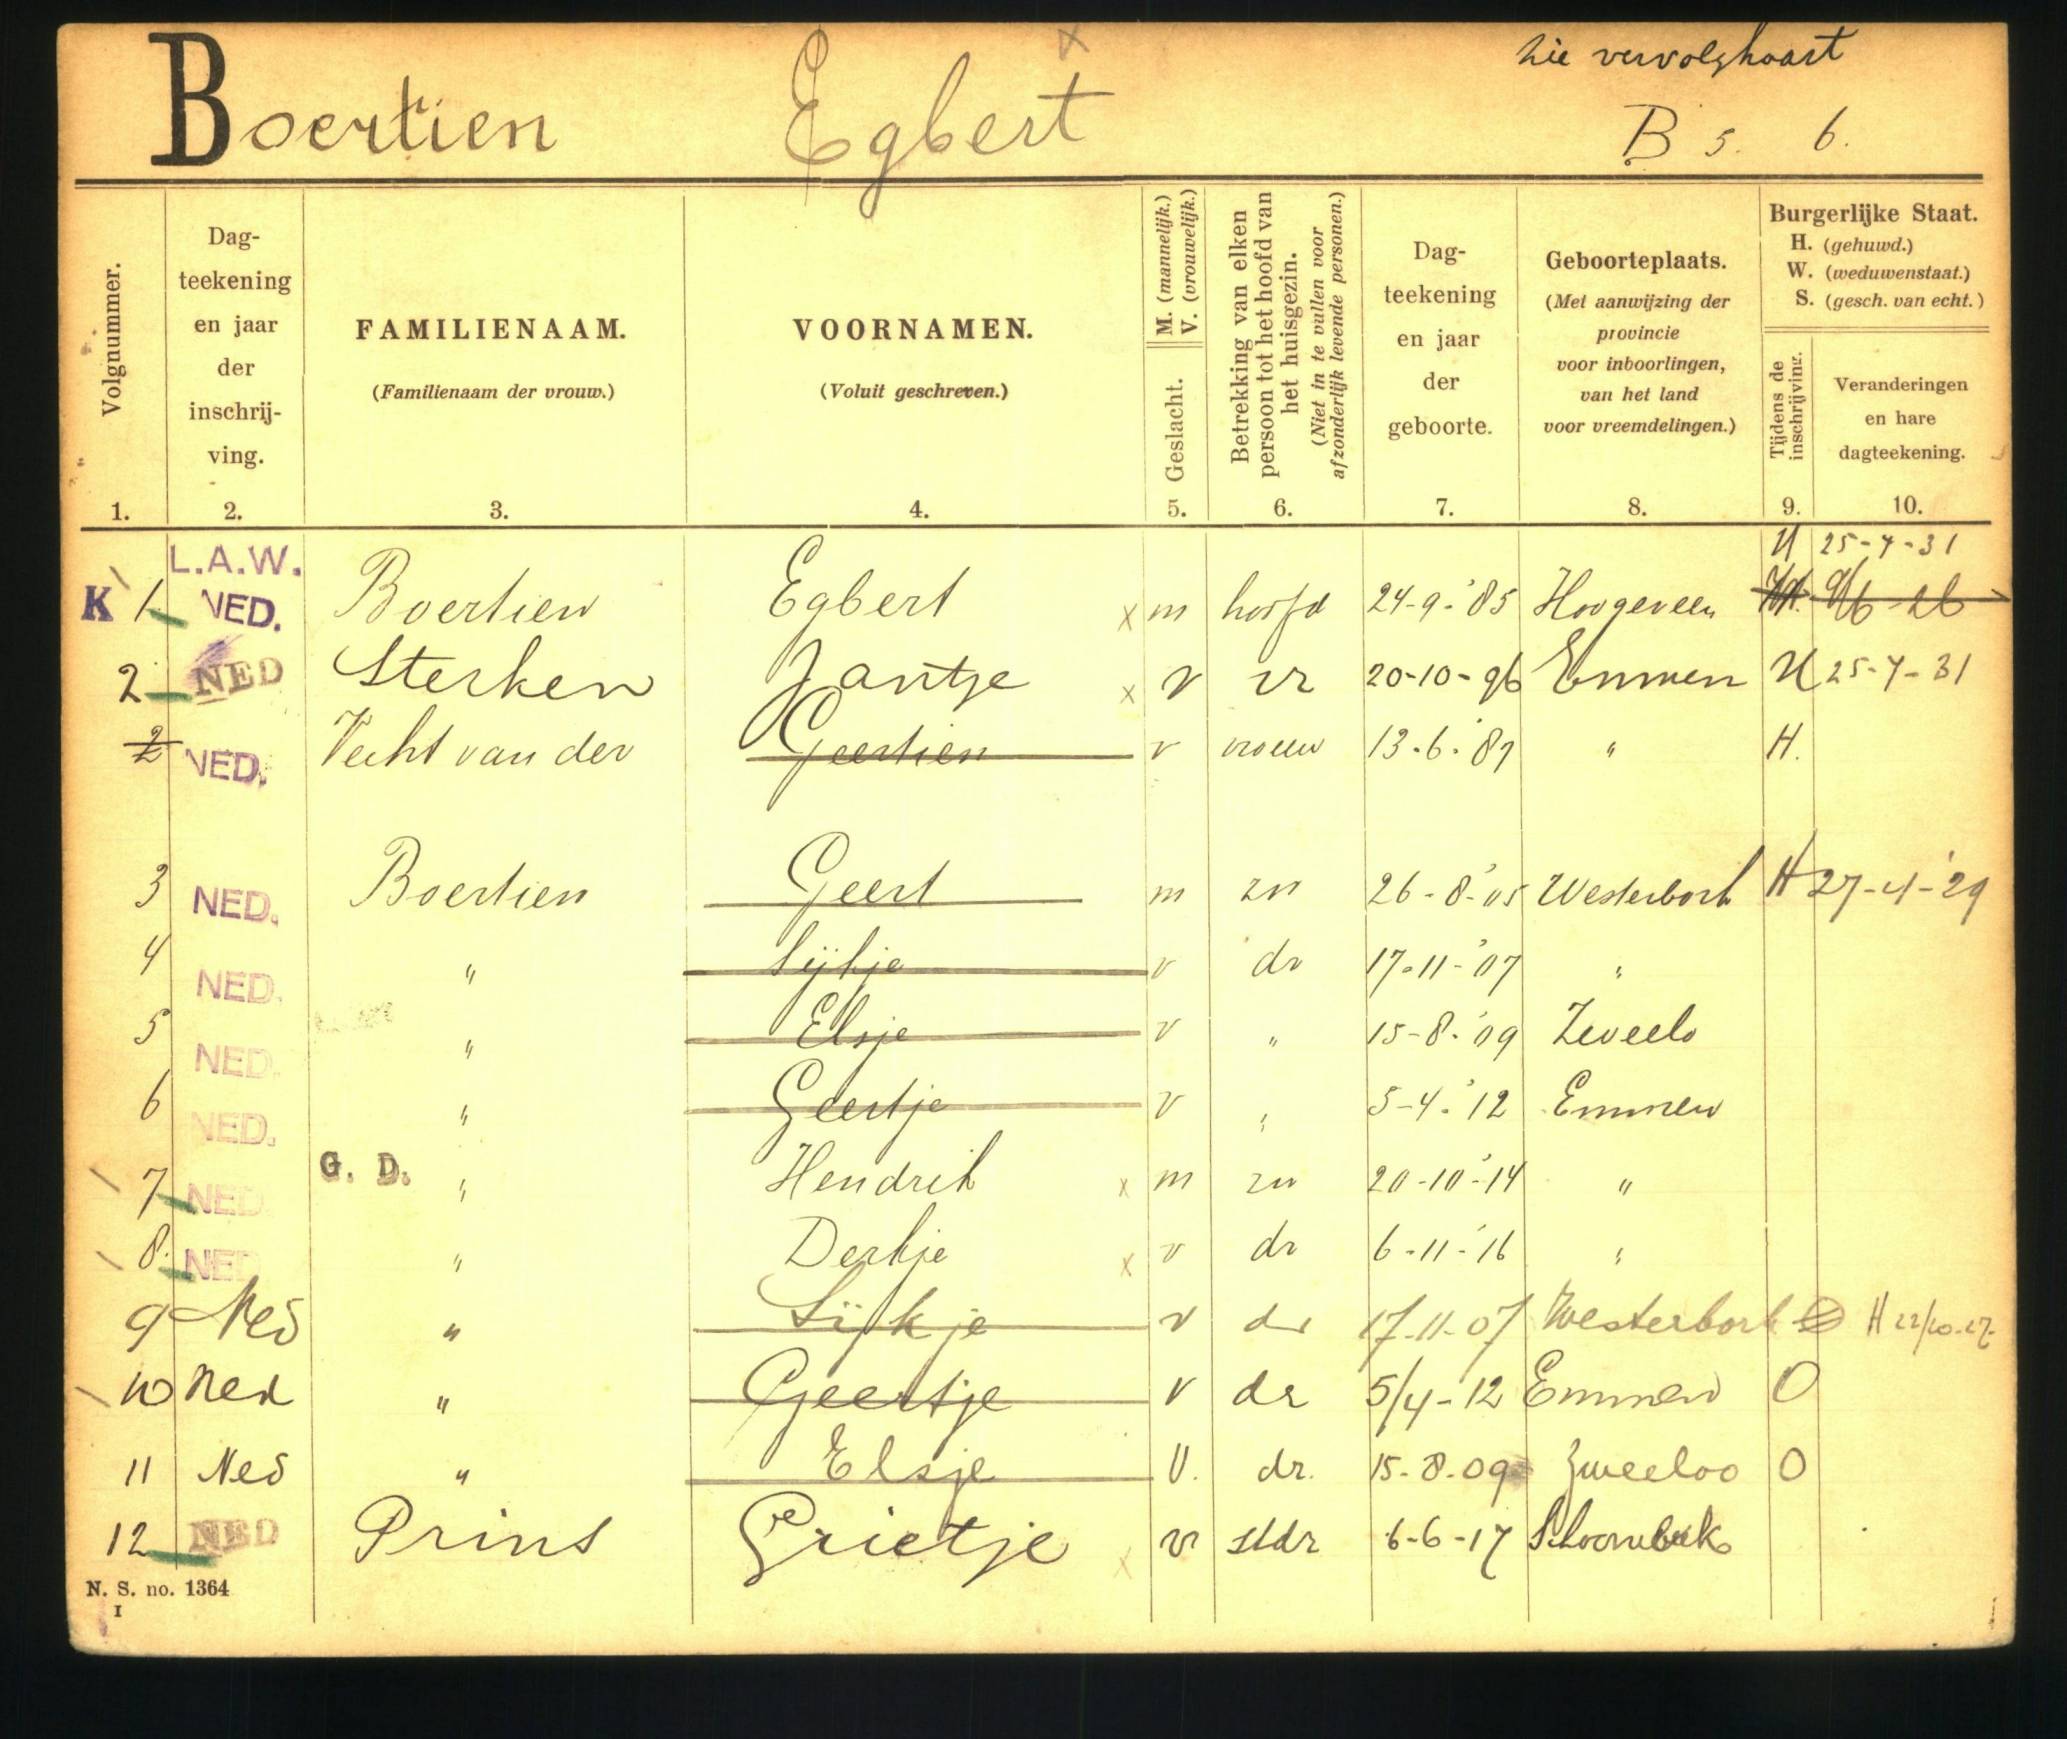 zie vervolgkaart
Boertien Egbert B 5. 6.
Volgnummer.
1.
Dag-
teekening
en jaar
der
inschrij-
ving.
2.
FAMILIENAAM.
(Familienaam der vrouw.)
3.
VOORNAMEN.
(Voluit geschreven.)
4.
M. (mannelijk.)
V. (vrouwelijk.)
Geslacht.
5.
Betrekking van elken
persoon tot het hoofd van
het huisgezin.
(Niet in te vullen voor
afzonderlijk levende personen.)
6.
Dag-
teekening
en jaar
der
geboorte.
7.
Geboorteplaats.
(Met aanwijzing der
provincie
voor inboorlingen,
van het land
voor vreemdelingen.)
8.
Burgerlijke Staat.
H. (gehuwd.)
W. (weduwenstaat.)
S. (gesch. van echt.)
Tijdens de
inschrijving.
9.
Veranderingen
en hare
dagteekening.
10.
L.A.W. H 25-7-31
K 1 NED. Boertien Egbert x m hoofd 24-9-'85 Hoogeveen
2 NED Sterken Jantje x v vr 20-10-96 Emmen H 25-7-31
2 NED. Vecht van der Geertien v vrouw 13-6-'87 " H.
3 NED. Boertien Geert m zn 26-8-'05 Westerbork H 27-4-'29
4 NED. " Sijkje v dr 17-11-'07 "
5 NED. " Elsje v " 15-8-'09 Zweelo
6 NED. " Geertje v " 5-4-'12 Emmen
7 NED. G. D. " Hendrik x m zn 20-10-'14 "
8. NED " Derkje x v dr 6-11-'16 "
9 Ned " Sijkje v dr 17-11-07 Westerbork H 22/10-27
10 Ned " Geertje v dr 5/4-12 Emmen O
11 Ned " Elsje V. dr. 15-8-09 Zweeloo O
12 NED Prins Grietje x v stdr 6-6-17 Schoonebeek
N. S. no. 1364
I